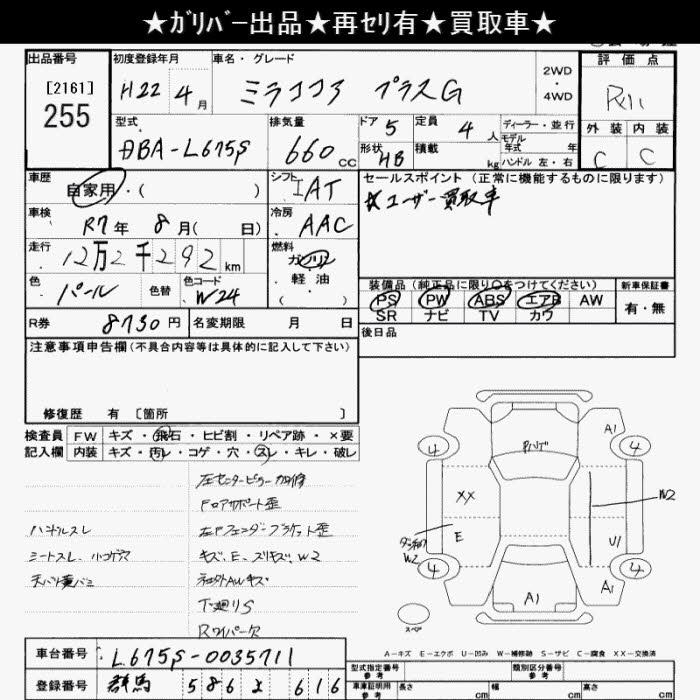 ★ｶﾞﾘﾊﾞｰ出品★再ｾﾘ有★買取車★
出品番号
[2161]
255
初度登録年月
H22年 4月
車名・グレード
ミラココア プラスG
2WD
・
4WD
評価点
RA11
外装 内装
C C
型式
DBA-L675S
排気量
660cc
ドア 5
定員 4人
形状 HB
積載 kg
ディーラー・並行
モデル年式 年
ハンドル 左・右
車歴
自家用・( )
シフト IAT
セールスポイント (正常に機能するものに限ります)
★ユーザー買取車
車検
R7年 8月( 日)
冷房 AAC
走行
12万2千292km
燃料
ガソリン
・軽油
・( )
色 パール
色替
色コード W24
装備品 (純正品に限り○をつけてください)
PS PW ABS エアB AW
SR ナビ TV カワ
新車保証書
有・無
R券 8730円
名変期限 月 日
後日品
注意事項申告欄(不具合内容等は具体的に記入して下さい)
修復歴 有 [箇所 ]
検査員記入欄
FW キズ・飛石・ヒビ割・リペア跡・×要
内装 キズ・汚レ・コゲ・穴・スレ・キレ・破レ
左センターピラー加修
Fロアサポート歪
ハンドルスレ
右Fフェンダーブラケット歪
シートスレ、小コゲ穴
キズ、E、スリキズ、W2
天バリ黄バミ
社外AWキズ
下廻りS
Rワイパー欠
4
A1
4
XX
W2
E
W2
U1
4
A1
A1
4
スペア
A-キズ E-エクボ U-凹み W-補修跡 S-サビ C-腐食 XX-交換済
車台番号 L675S-0035711
登録番号 群馬 586 616
型式指定番号 参考
類別区分番号 参考
車庫証明用 参考
長さ cm
幅 cm
高さ cm